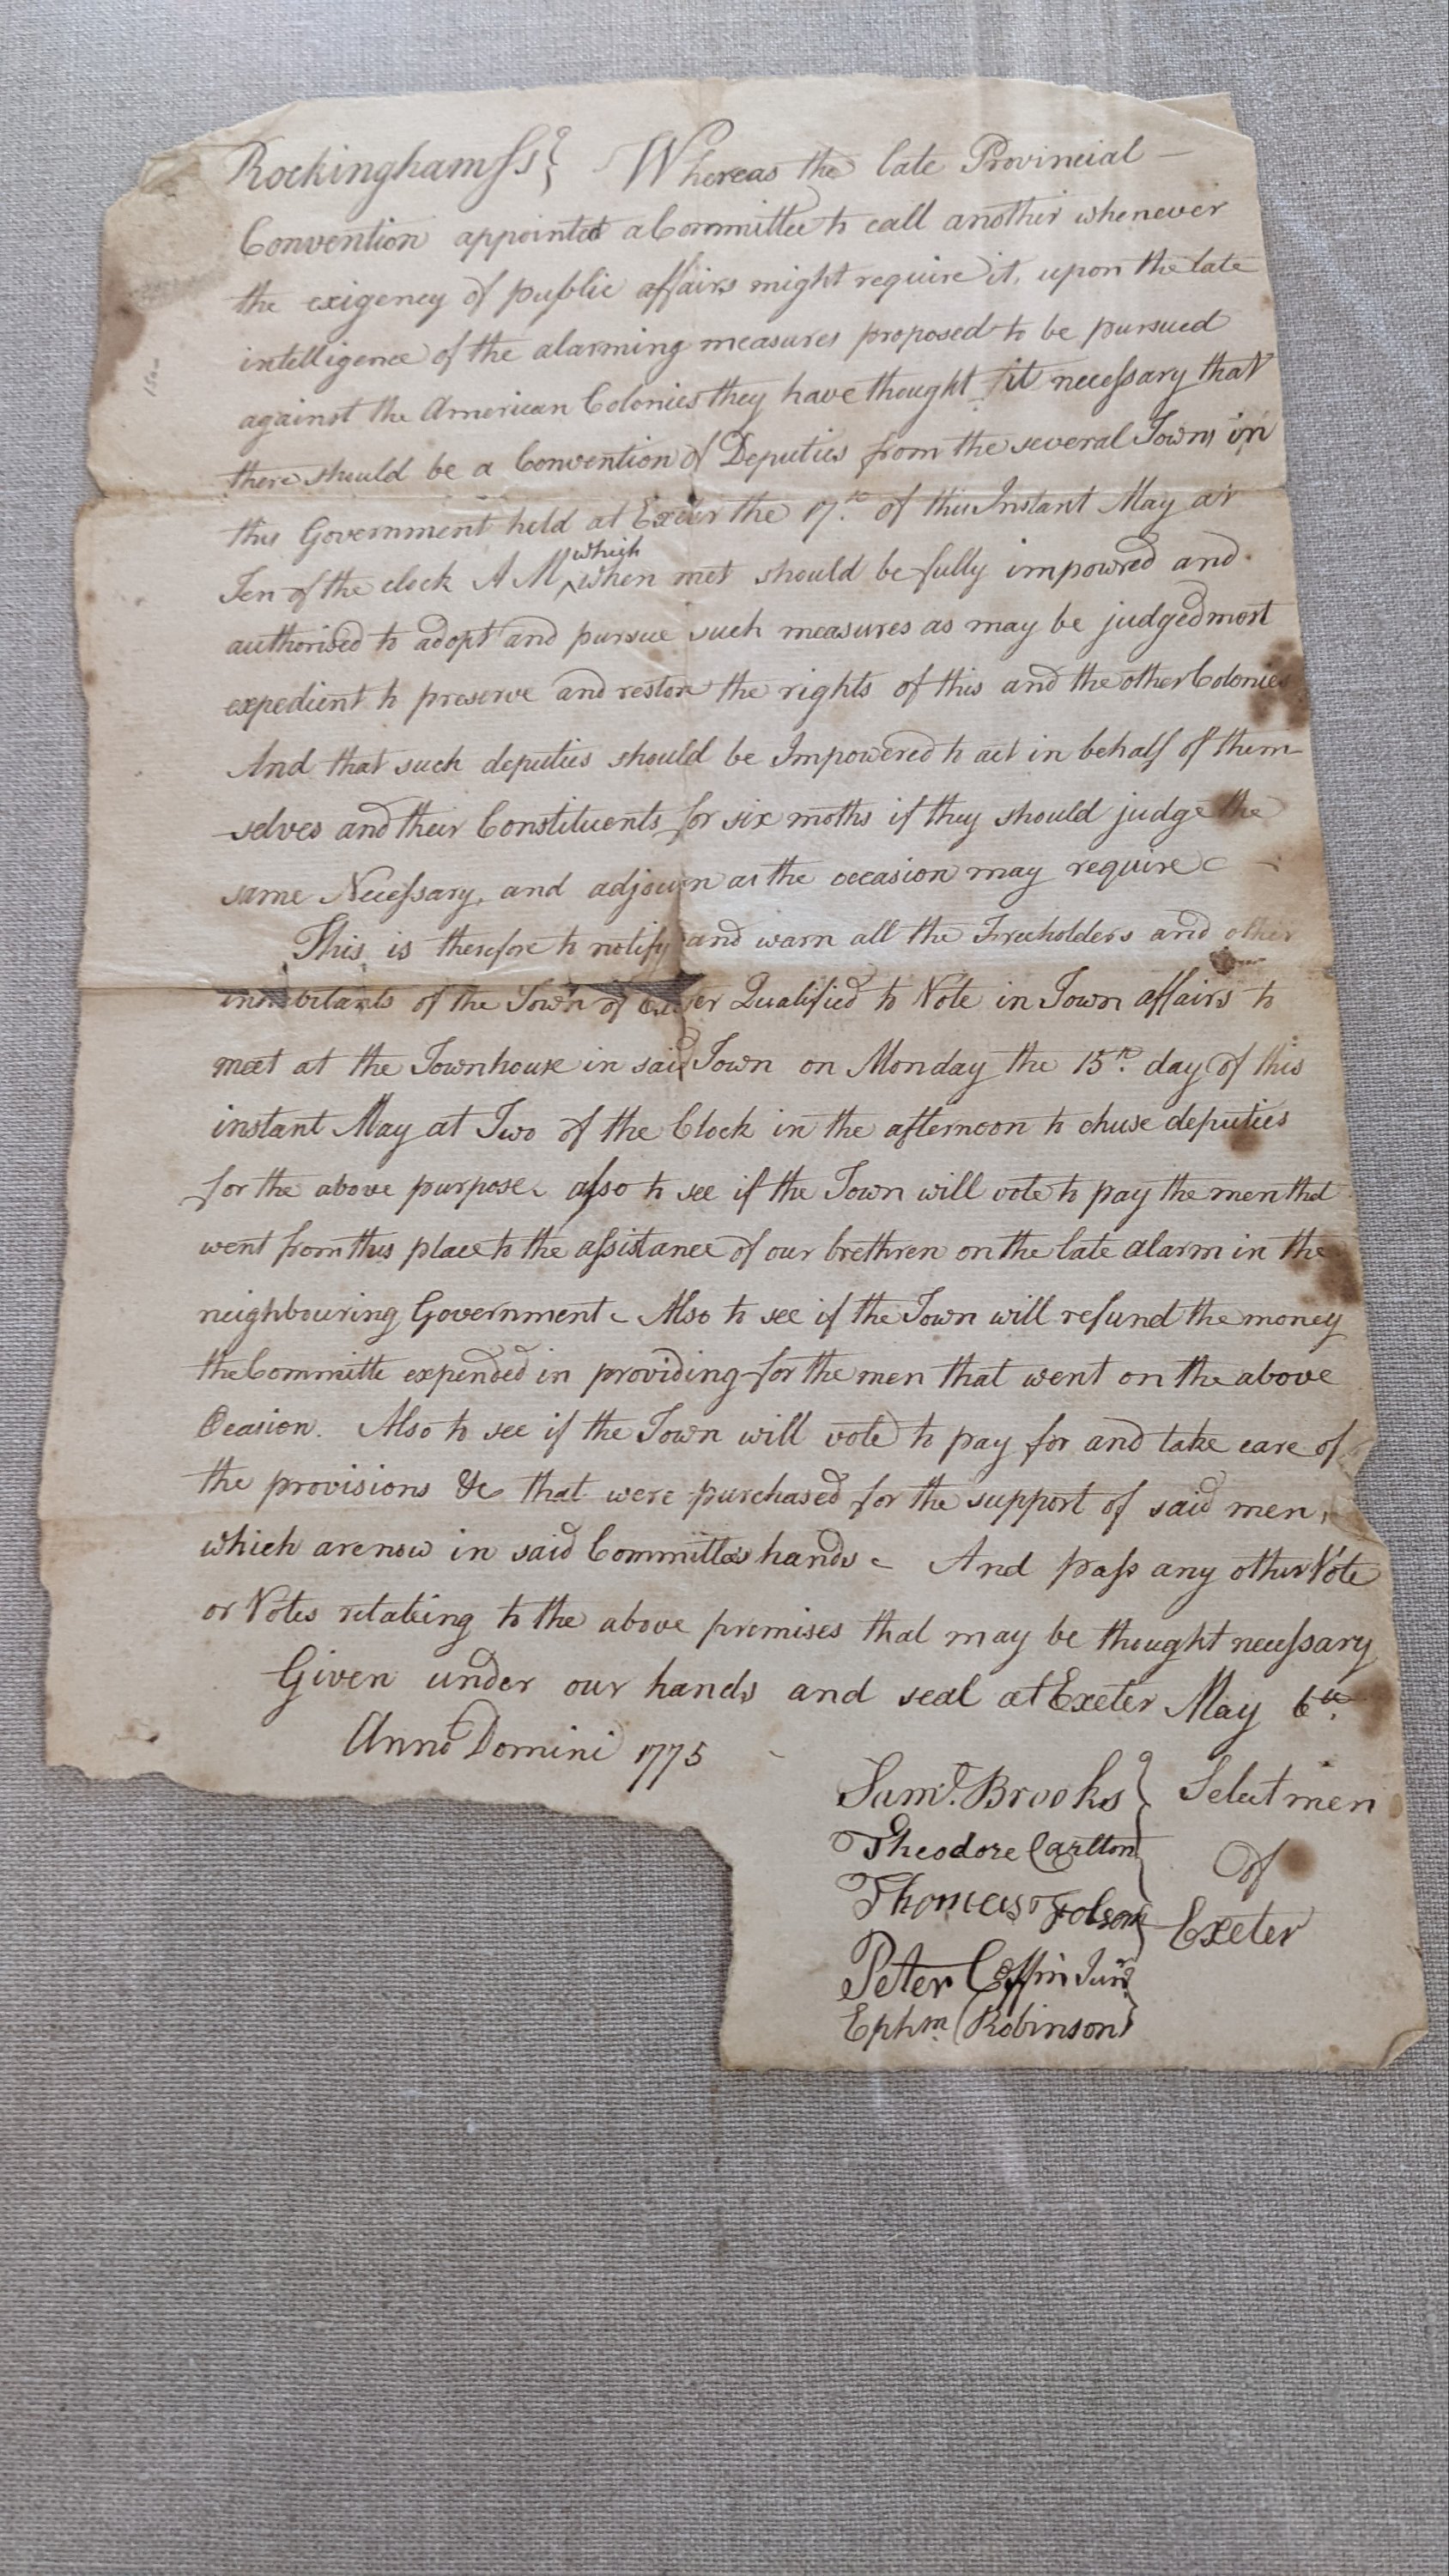 Rockingham ss} Whereas the late Provincial —
Convention appointed a Committee to call another whenever
the exigency of public affairs might require it, upon the late
intelligence of the alarming measures proposed to be pursued
against the American Colonies they have thought it necessary that
there should be a Convention of Deputies from the several Towns in
this Government held at Exeter the 17.th of this Instant May at
which
Ten of the clock A M ^ when met should be fully impowred and
authorised to adopt and pursue such measures as may be judged most
expedient to preserve and restore the rights of this and the other Colonies
And that such deputies should be Impowered to act in behalf of them-
selves and their Constituents for six moths if they should judge the
same Necessary, and adjourn as the occasion may require
This is therefore to notify and warn all the Freeholders and other
inhabitants of the Town of Exeter Qualified to Vote in Town affairs to
meet at the Townhouse in said Town on Monday the 15.th day of this
instant May at Two of the Clock in the afternoon to chuse deputies
for the above purpose. also to see if the Town will vote to pay the men that
went from this place to the assistance of our brethren on the late alarm in the
neighbouring Government. Also to see if the Town will refund the money
the Committe expended in providing for the men that went on the above
Ocasion. Also to see if the Town will vote to pay for and take care of
the provisions &c that were purchased for the support of said men,
which are now in said Committes hands. And pass any other Vote
or Votes relating to the above premises that may be thought necessary
Given under our hands and seal at Exeter May 6th.
Anno Domini 1775
Saml. Brooks } Selectmen
Theodore Carlton
of
Thomas Folsom
Exeter
Peter Coffin Junr
Ephm. Robinson